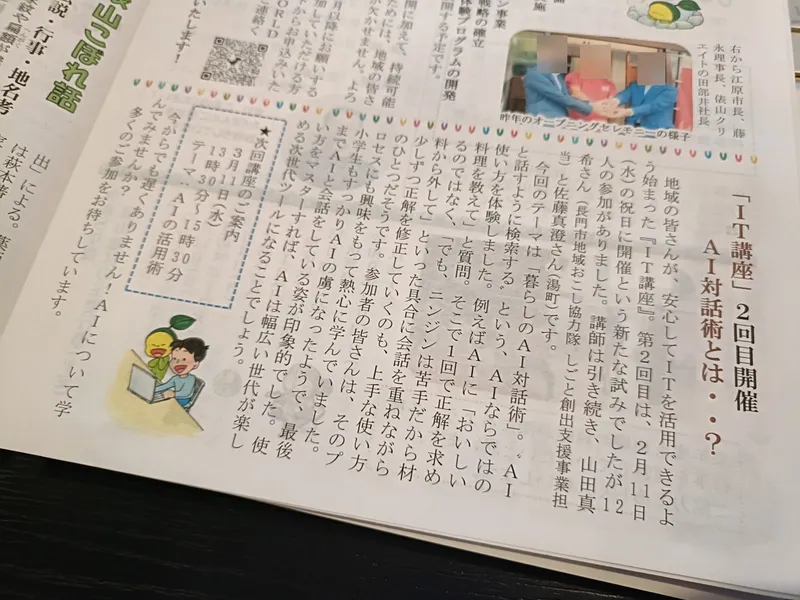 右から江原市長、藤
永理事長、俵山クリ
エイトの田部井社長
昨年のオープニングセレモニーの様子
施
ン事業
戦略の確立
体験プログラムの開発
開する予定です。
開に加えて、持続可能
ためには、地域の皆さ
かかせません。よろ
月以降にお願いする
加していただける方
ドからお申込みいた
ORLD
連絡く
いたします！
「IT講座」２回目開催
AI対話術とは・・？
地域の皆さんが、安心してITを活用できるよ
う始まった『IT講座』。第２回目は、２月１１日
（水）の祝日に開催という新たな試みでしたが１２
人の参加がありました。講師は引き続き、山田真
希さん（長門市地域おこし協力隊 しごと創出支援事業担
当）と佐藤真澄さん（湯町）です。
今回のテーマは「暮らしのAI対話術」。〝AI
と話すように検索する〟という、AIならではの
使い方を体験しました。例えばAIに「おいしい
料理を教えて」と質問。そこで１回で正解を求め
るのではなく、「でも、ニンジンは苦手だから材
料から外して」といった具合に会話を重ねながら
少しずつ正解を修正していくのも、上手な使い方
のひとつだそうです。参加者の皆さんは、そのプ
ロセスにも興味をもって熱心に学んでいました。
小学生もすっかりAIの虜になったようで、最後
までAIと会話をしている姿が印象的でした。使
い方をマスターすれば、AIは幅広い世代が楽し
める次世代ツールになることでしょう。
★次回講座のご案内
３月１１日（水）
１３時３０分～１５時３０分
テーマ：AIの活用術
今からでも遅くありません！AIについて学
んでみませんか？
多くのご参加をお待ちしています。
山こぼれ話
説・行事・地名考
出」による。